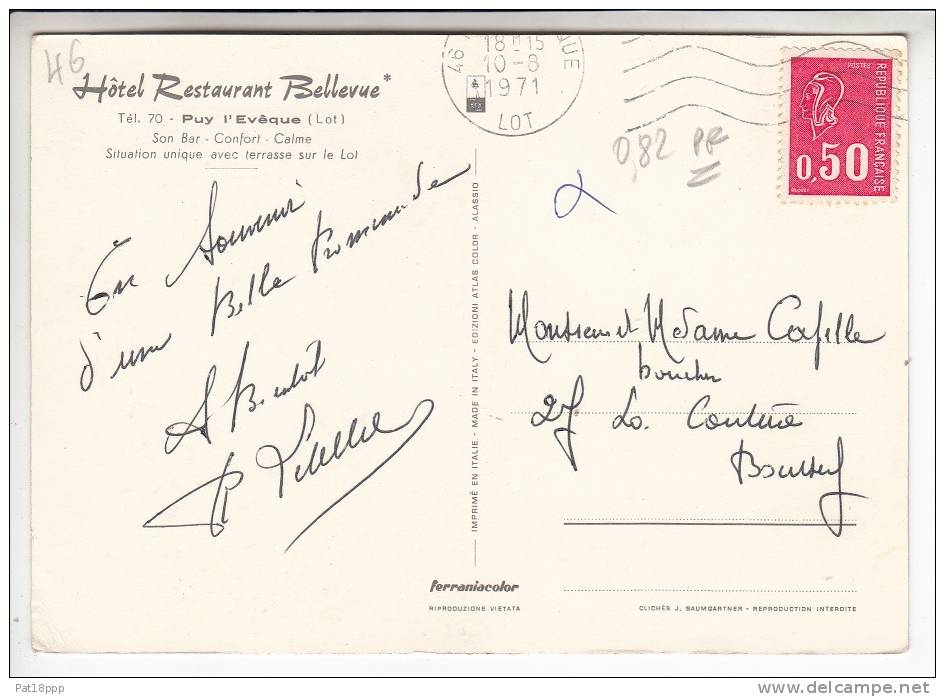 46
Hôtel Restaurant Bellevue*
Tél. 70 - Puy l'Evêque (Lot)
Son Bar - Confort - Calme
Situation unique avec terrasse sur le Lot
En Souvenir
d'une Belle Promenade
A Bientôt
46
QUE
18H15
10-8
1971
LOT
0,82 PF
POSTES
REPUBLIQUE FRANÇAISE
0,50
Monsieur et Madame Capelle
boucher
27 La Couture
IMPRIMÉ EN ITALIE - MADE IN ITALY - EDIZIONI ATLAS COLOR - ALASSIO
ferraniacolor
RIPRODUZIONE VIETATA
CLICHÉS J. BAUMGARTNER - REPRODUCTION INTERDITE
Pat18ppp
delcampe.net